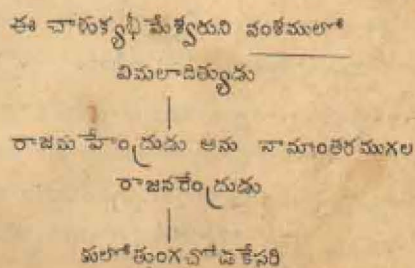 ఈ చాళుక్యభీమేశ్వరుని వంశములో
విమలాదిత్యుడు
రాజమహేంద్రుడు అను నామాంతరముగల
రాజనరేంద్రుడు
కులోత్తుంగచోడకేసరి